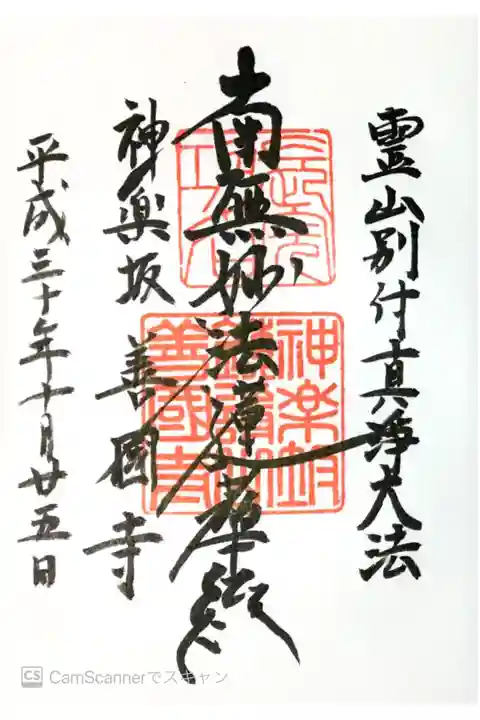 霊山別付真浄大法
南無妙法蓮華経
神楽坂 善國寺
平成三十年十月廿五日
神楽坂
善國寺
CS CamScannerでスキャン